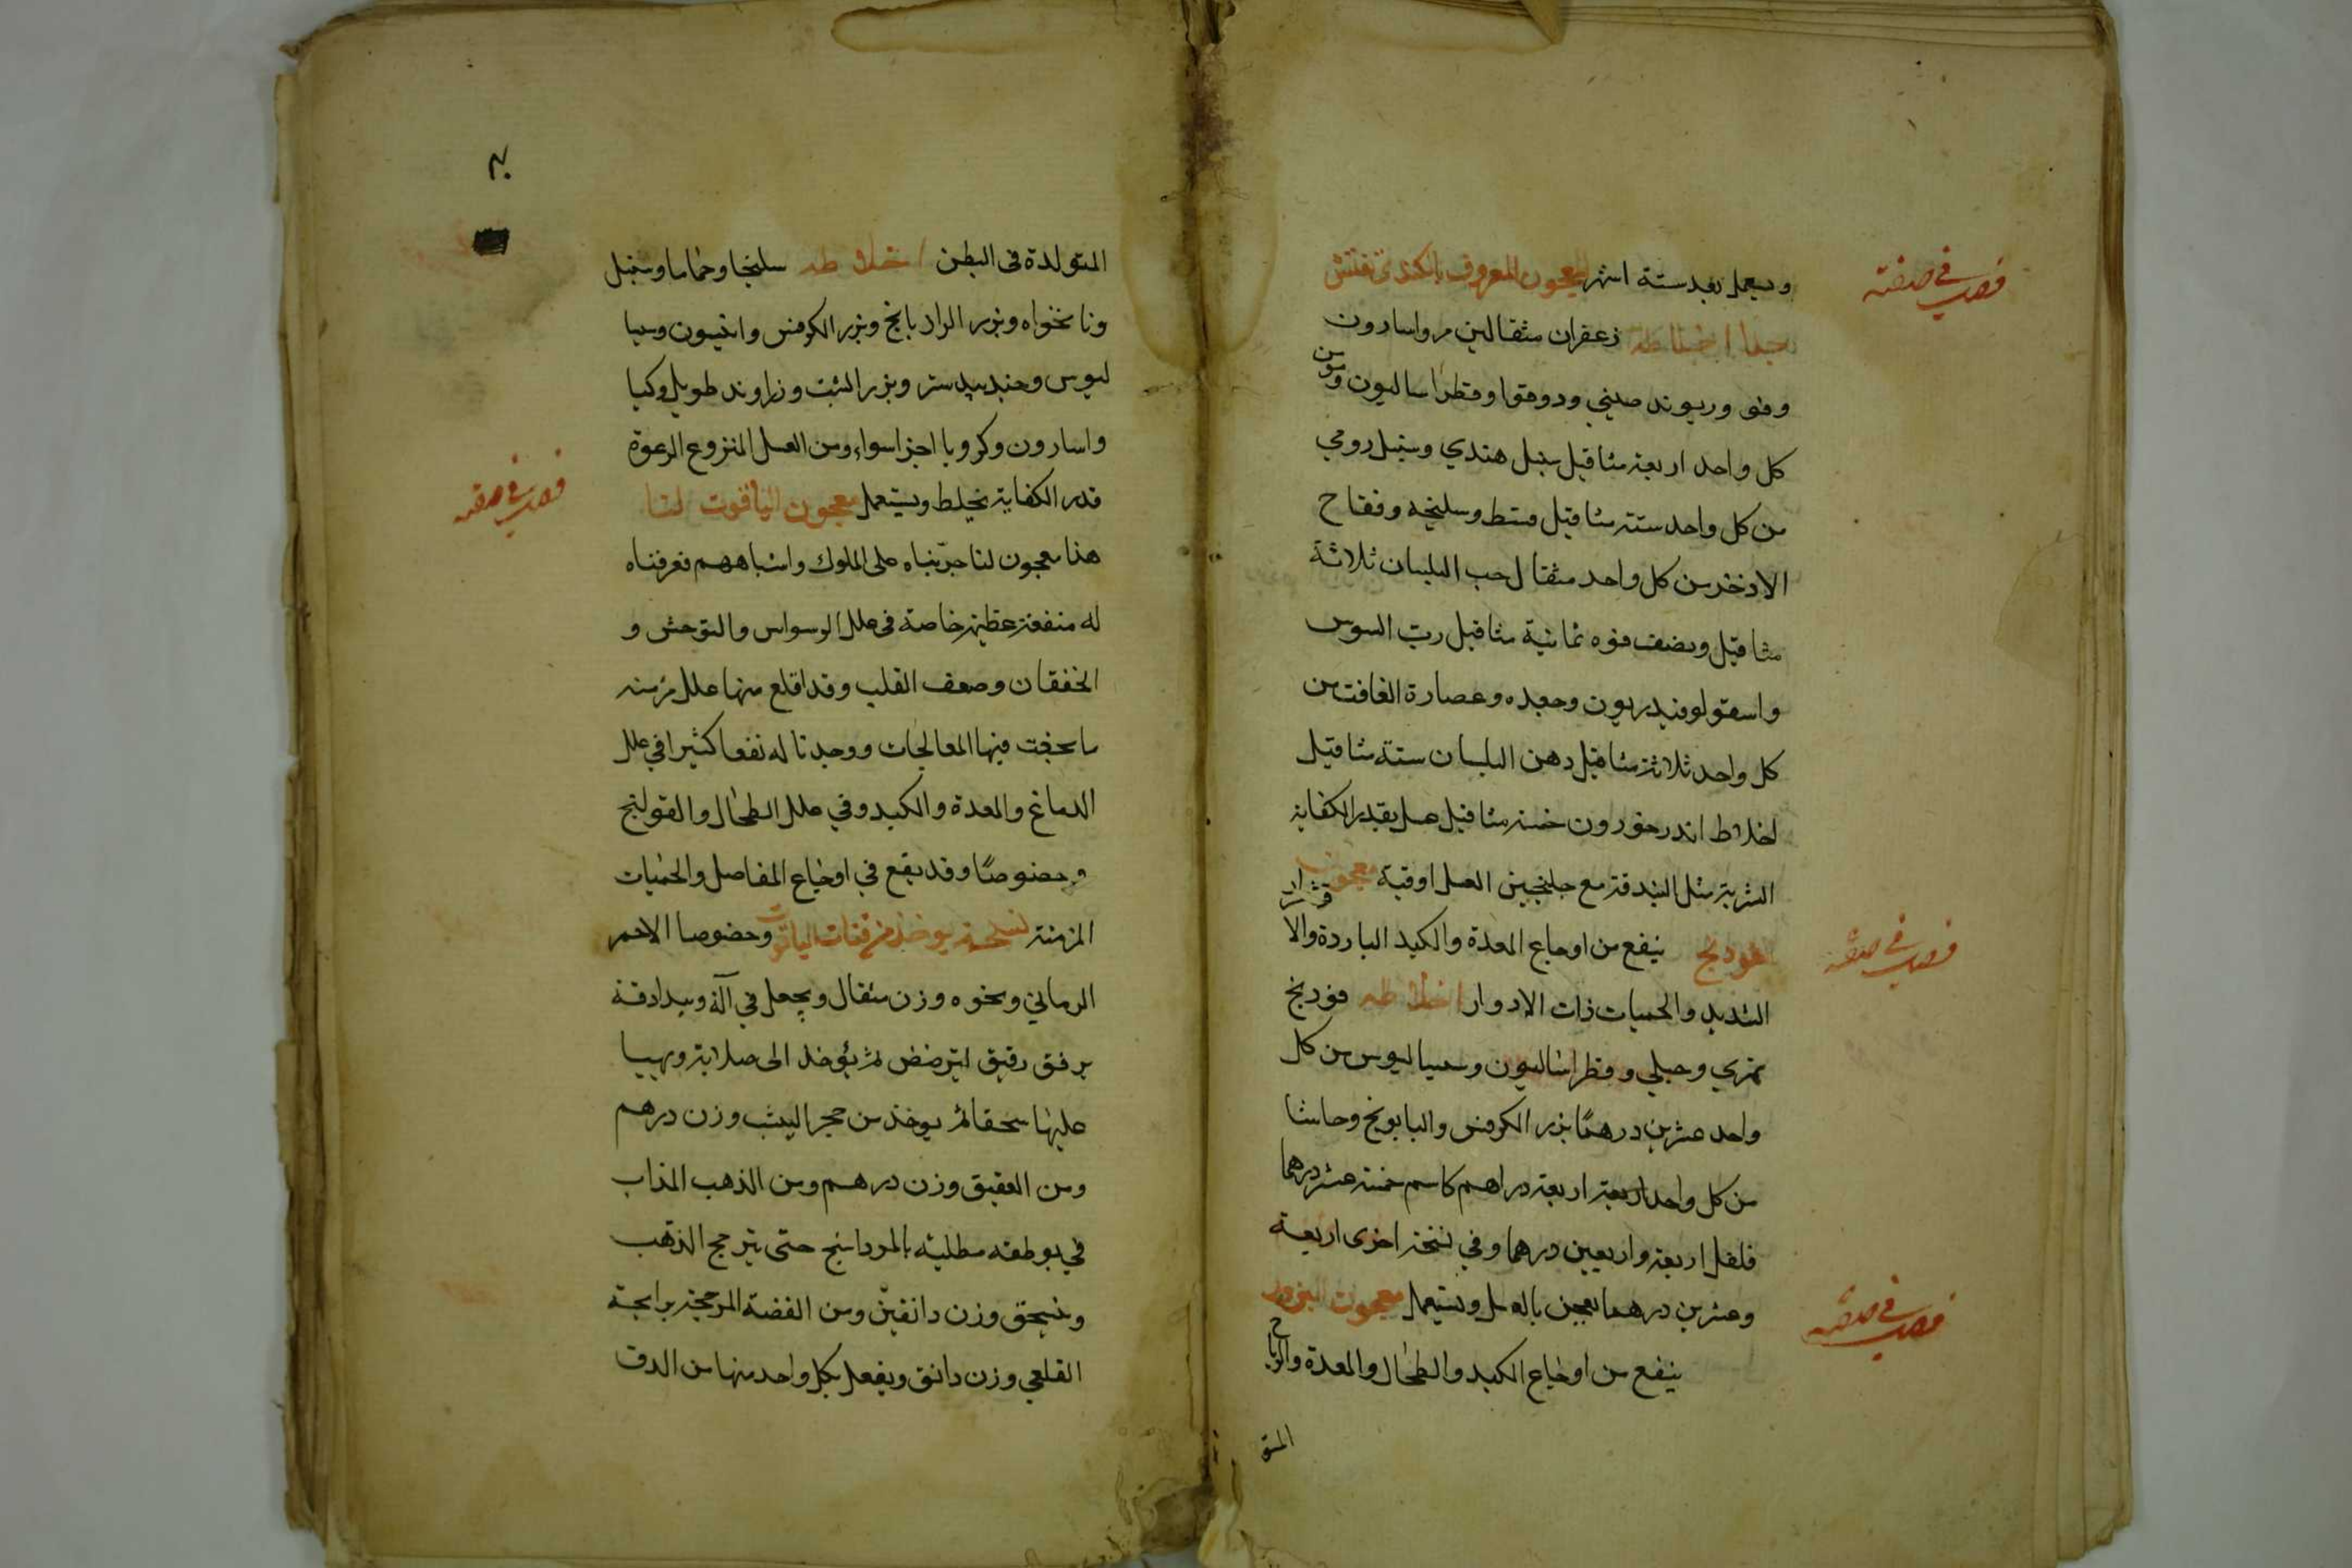 فصل في صفته
ويستعمل بعد ستة اشهر المعجون المعروف بالكندي نفتش
جيدا اخلاطه زعفران مثقالين مر واسارون
وفو وريوند صيني ودوقوا وفطراساليون ومو من
كل واحد اربعة مثاقيل سنبل هندي وسنبل رومي
من كل واحد ستة مثاقيل قسط وسليخه وفقاح
الاذخر من كل واحد مثقال حب البلسان ثلاثة
مثاقيل ونصف فوه ثمانية مثاقيل رب السوس
واسقولوفندريون وجعده وعصارة الغافت من
كل واحد ثلاثة مثاقيل دهن البلسان ستة مثاقيل
اخلاط اندرخورون خمسة مثاقيل عسل بقدر الكفاية
الشربة مثل البندقة مع جلنجبين العسل اوقية معجون
فصل في صفته
الفودنج ينفع من اوجاع المعدة والكبد الباردة والاقشعرار
الشديد والحميات ذات الادوار اخلاطه فودنج
نهري وجبلي وفطراساليون وسيساليوس من كل
واحد عشرين درهمًا بزر الكرفس والبابونج وحاشا
من كل واحد اربعة اربعة دراهم كاشم خمسة عشر درهما
فلفل اربعة واربعين درهما وفي نسخة اخرى اربعة
وعشرين درهما يعجن بالعسل ويستعمل معجون البزور
فصل في صفته
ينفع من اوجاع الكبد والطحال والمعدة والرياح
المتو
المتولدة في البطن اخلاطه سليخا وحماما وسنبل
ونانخواه وبزر الرازيانج وبزر الكرفس وانيسون وسيسا
ليوس وجندبيدستر وبزر الشبت وزراوند طويل وكيا
واسارون وكرويا اجزا سواء ومن العسل المنزوع الرغوة
فصل في صفته
قدر الكفاية يخلط ويستعمل معجون الياقوت لنا
هذا معجون لنا جرّبناه على الملوك واشباههم فعرفناه
له منفعة عظيمة خاصة في علل الوسواس والتوحش و
الخفقان وضعف القلب وقد اقلع منها علل مزمنه
ما نجفت فيها المعالجات ووجدنا له نفعا كثيرا في علل
الدماغ والمعدة والكبد وفي علل الطحال والقولنج
وخصوصًا وقد يقع في اوجاع المفاصل والحميات
المزمنة نسخته يوخذ من فتات الياقوت وخصوصا الاحمر
الرماني ونحوه وزن مثقال ويجعل في آلة ويدادقه
برفق رقيق ليترضض ثم يؤخذ الى صلاية ويهيا
عليها سحقا ثم يوخذ من حجر اليشب وزن درهم
ومن العقيق وزن درهم ومن الذهب المذاب
في بوطقه مطلية بالمرداسنج حتى يترجح الذهب
وينسحق وزن دانقين ومن الفضة المرججة برايحة
القلعي وزن دانق ويفعل بكل واحد منها من الدق